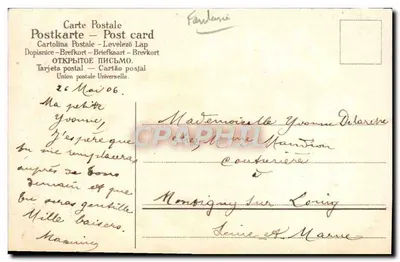 Fantaisie
Carte Postale
Postkarte — Post card
Cartolina Postale - Levelező Lap
Dopisnice - Brefkort - Briefkaart - Brevkort
ОТКРЫТОЕ ПИСЬМО.
Tarjeta postal — Cartão postal
Union postale Universelle.
26 Mai 06.
Ma petite
Yvonne,
J'espère que
tu me remplaceras
auprès de bons
demain et que
tu seras gentille
Mille baisers.
Mademoiselle Yvonne Delarche
chez Mme
Couturière
à
Montigny sur Loing
Seine et Marne
CPARAMA.COM